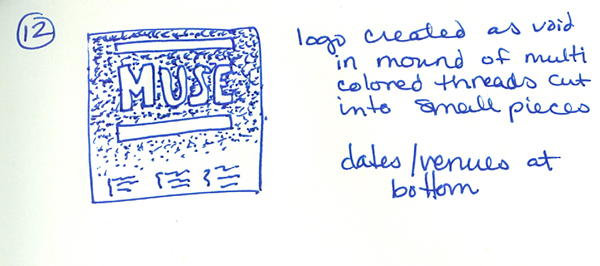 12
MUSE
logo created as void
in mound of multi
colored threads cut
into small pieces
dates/venues at
bottom